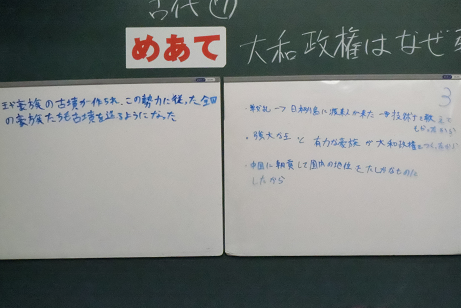 古代(1)
めあて 大和政権はなぜ
王や豪族の古墳が作られ、この勢力に従った全国
の豪族たちも古墳を造るようになった
3
日本列島に渡来人が来た → 技術
・強大な王 と 有力な豪族 が 大和政権
・中国に朝貢して国内の地位 をたしかなものに
したから